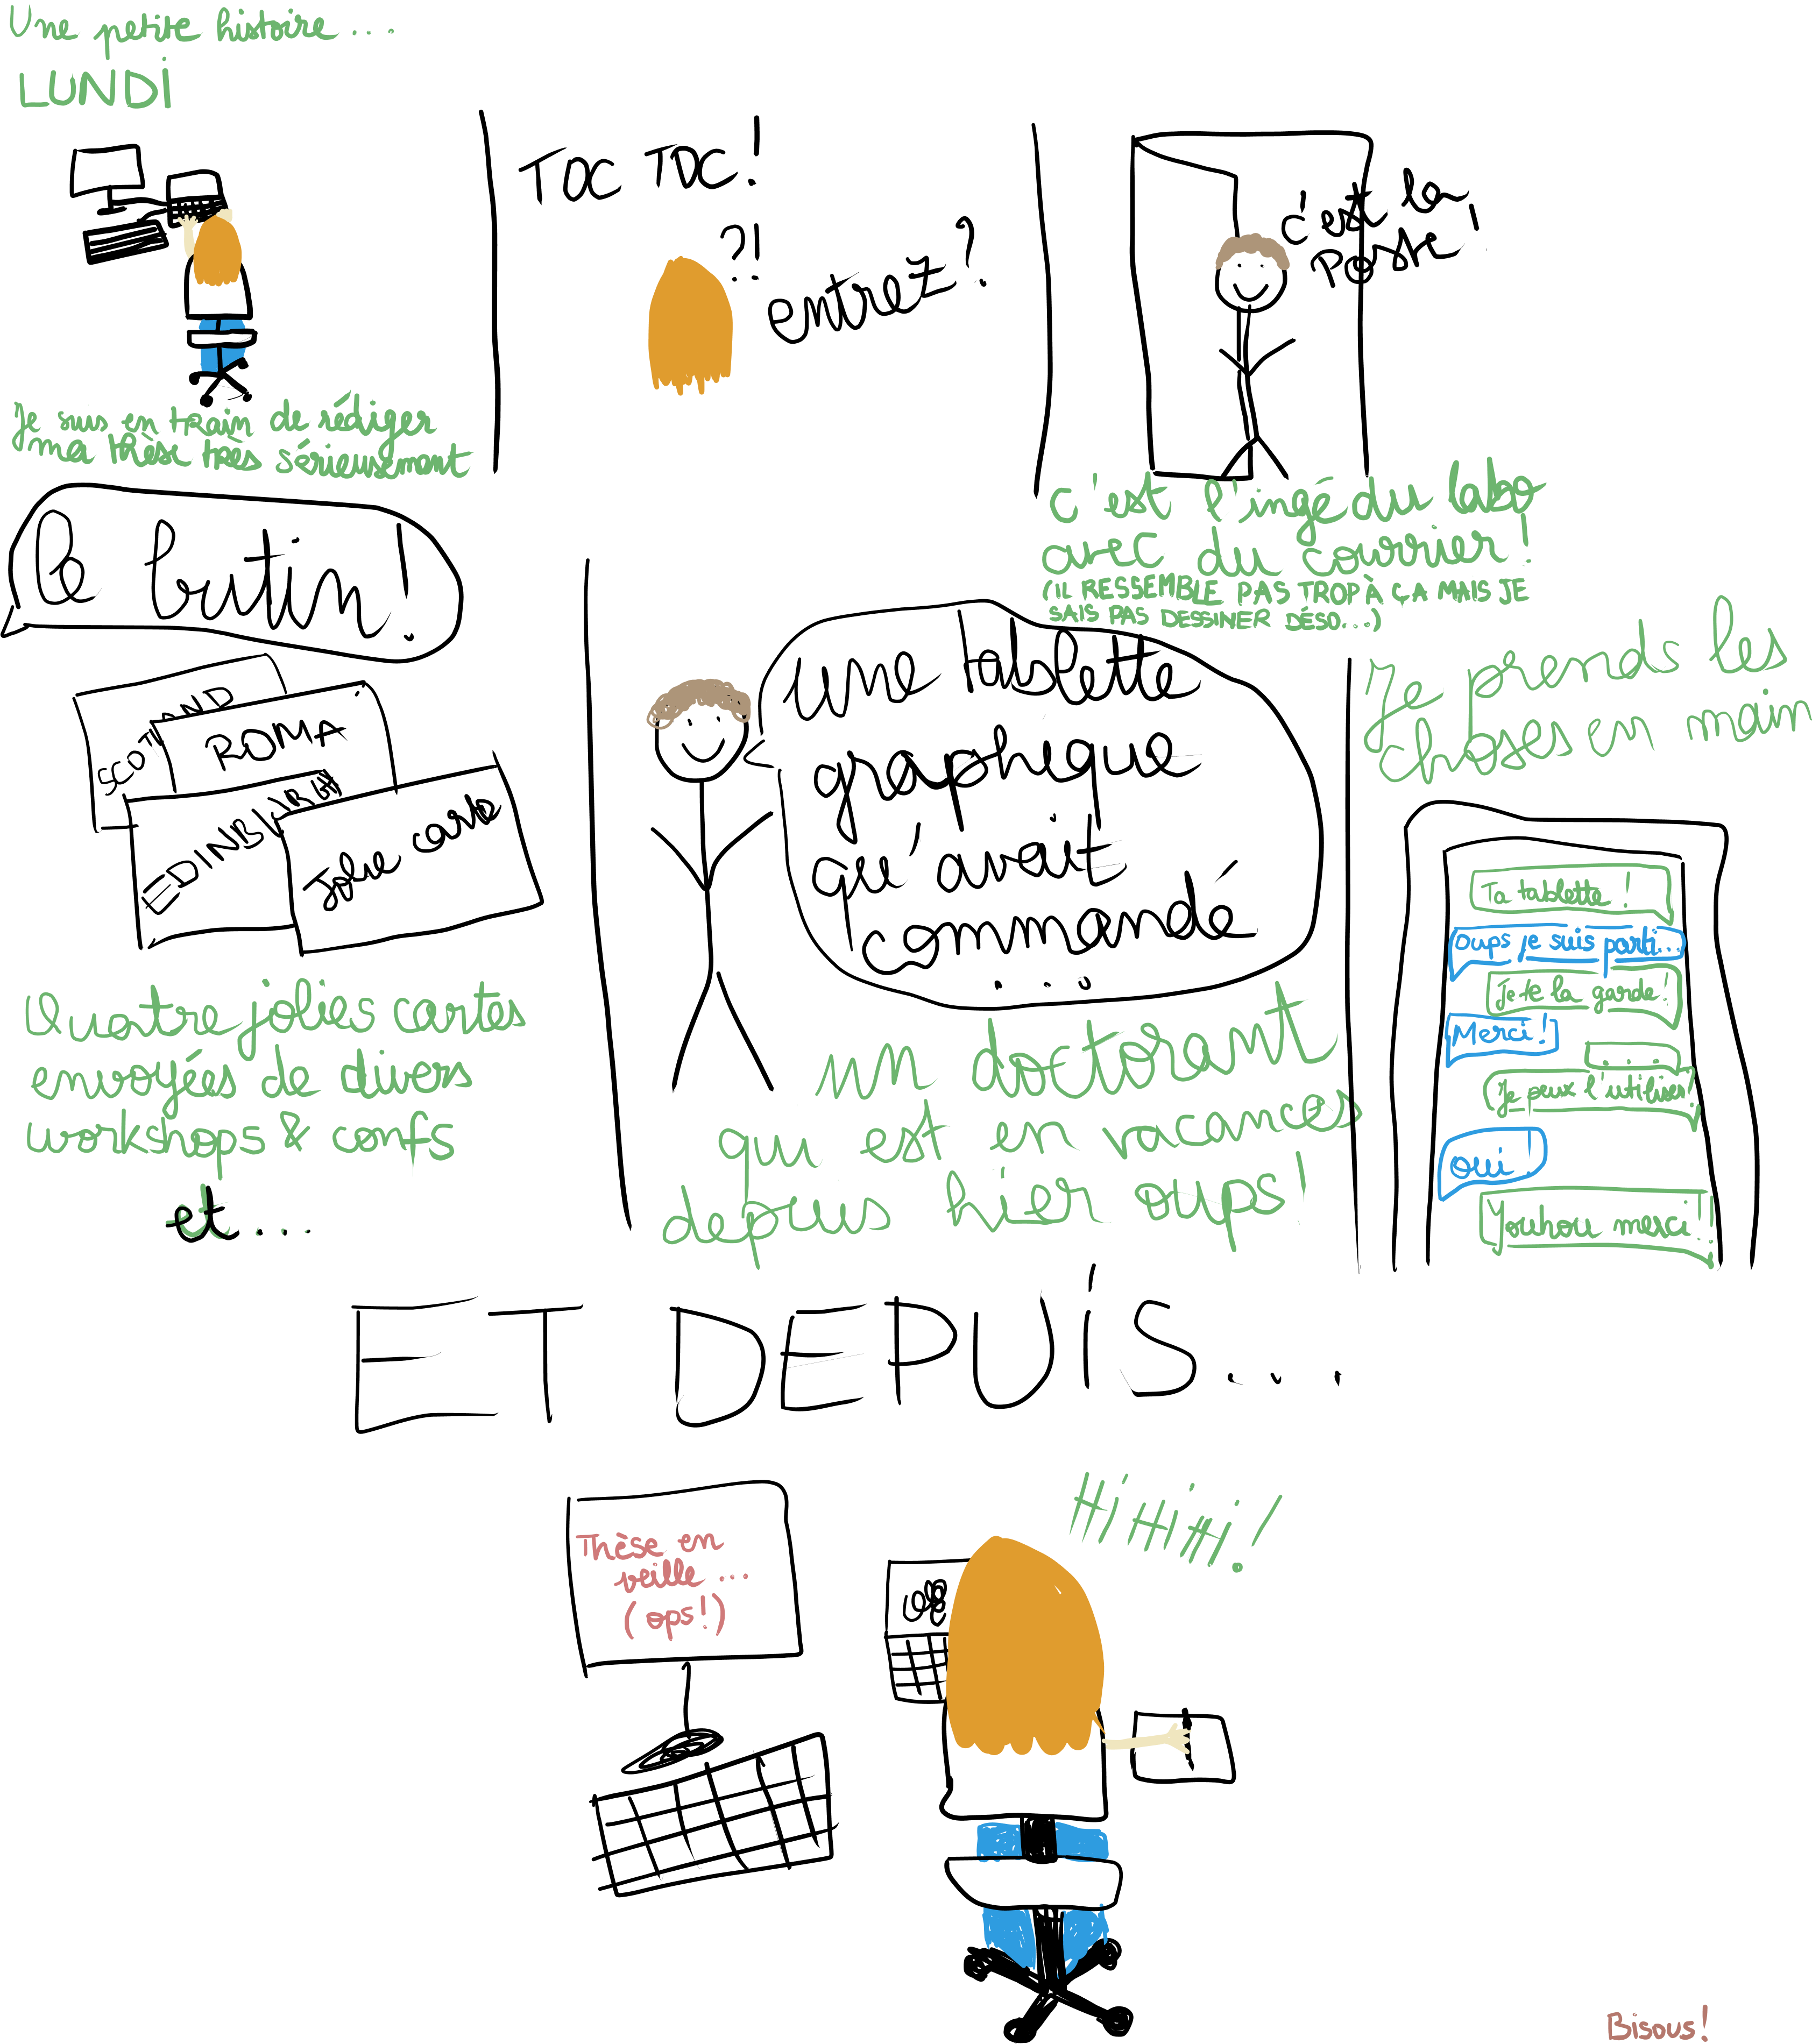 Une petite histoire ...
LUNDI
Je suis en train de rédiger
ma thèse très sérieusement
TOC TOC!
?!
entrez?
c'est la
poste!
c'est l'ingé du labo
avec du courrier!
(IL RESSEMBLE PAS TROP À ÇA MAIS JE
SAIS PAS DESSINER DÉSO...)
Le butin!
SCOTLAND
ROMA
EDINBURGH
Jolie carte
Quatre jolies cartes
envoyées de divers
workshops & confs
et ...
Une tablette
graphique
qu'avait
commandé
...
un doctorant
qui est en vacances
depuis hier oups!
Je prends les
choses en main
Ta tablette!
Oups je suis parti...
Je te la garde!
Merci!
....
Je peux l'utiliser?
oui!
Youhou merci!!
ET DEPUIS...
Thèse en
veille ...
(oops!)
Hihihi!
Bisous!